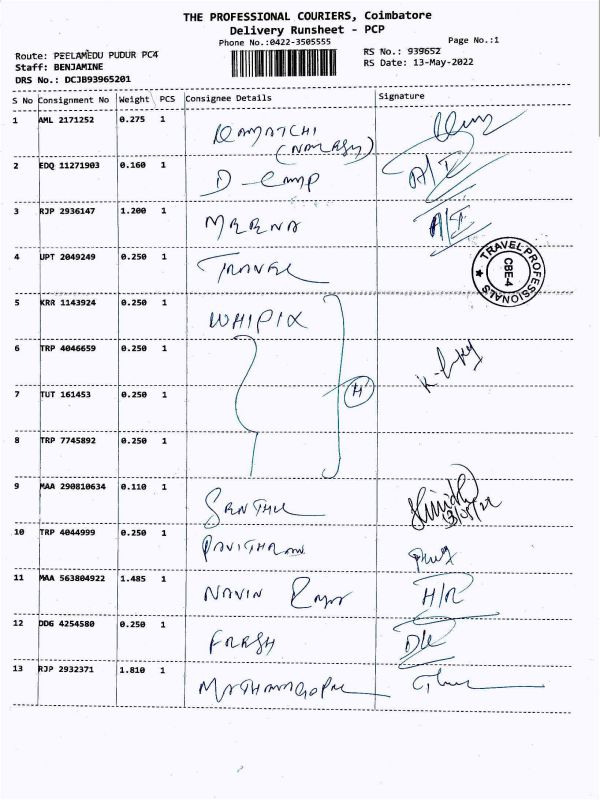 THE PROFESSIONAL COURIERS, Coimbatore
Delivery Runsheet - PCP
Phone No.:0422-3505555
Page No.:1
Route: PEELAMEDU PUDUR PC4
RS No.: 939652
Staff: BENJAMINE
RS Date: 13-May-2022
DRS No.: DCJB93965201
S No Consignment No Weight PCS Consignee Details Signature
1 AML 2171252 0.275 1
2 EDQ 11271903 0.160 1 D-Camp A/I
3 RJP 2936147 1.200 1 MEENA A/I
4 UPT 2049249 0.250 1 TRAVEL
TRAVEL PROFESSIONALS
CBE-4
5 KRR 1143924 0.250 1 WHIPIX
6 TRP 4046659 0.250 1
7 TUT 161453 0.250 1 H
8 TRP 7745892 0.250 1
9 MAA 290810634 0.110 1
10 TRP 4044999 0.250 1
11 MAA 563804922 1.485 1 NAVIN H/R
12 DDG 4254580 0.250 1 FRESH
13 RJP 2932371 1.810 1